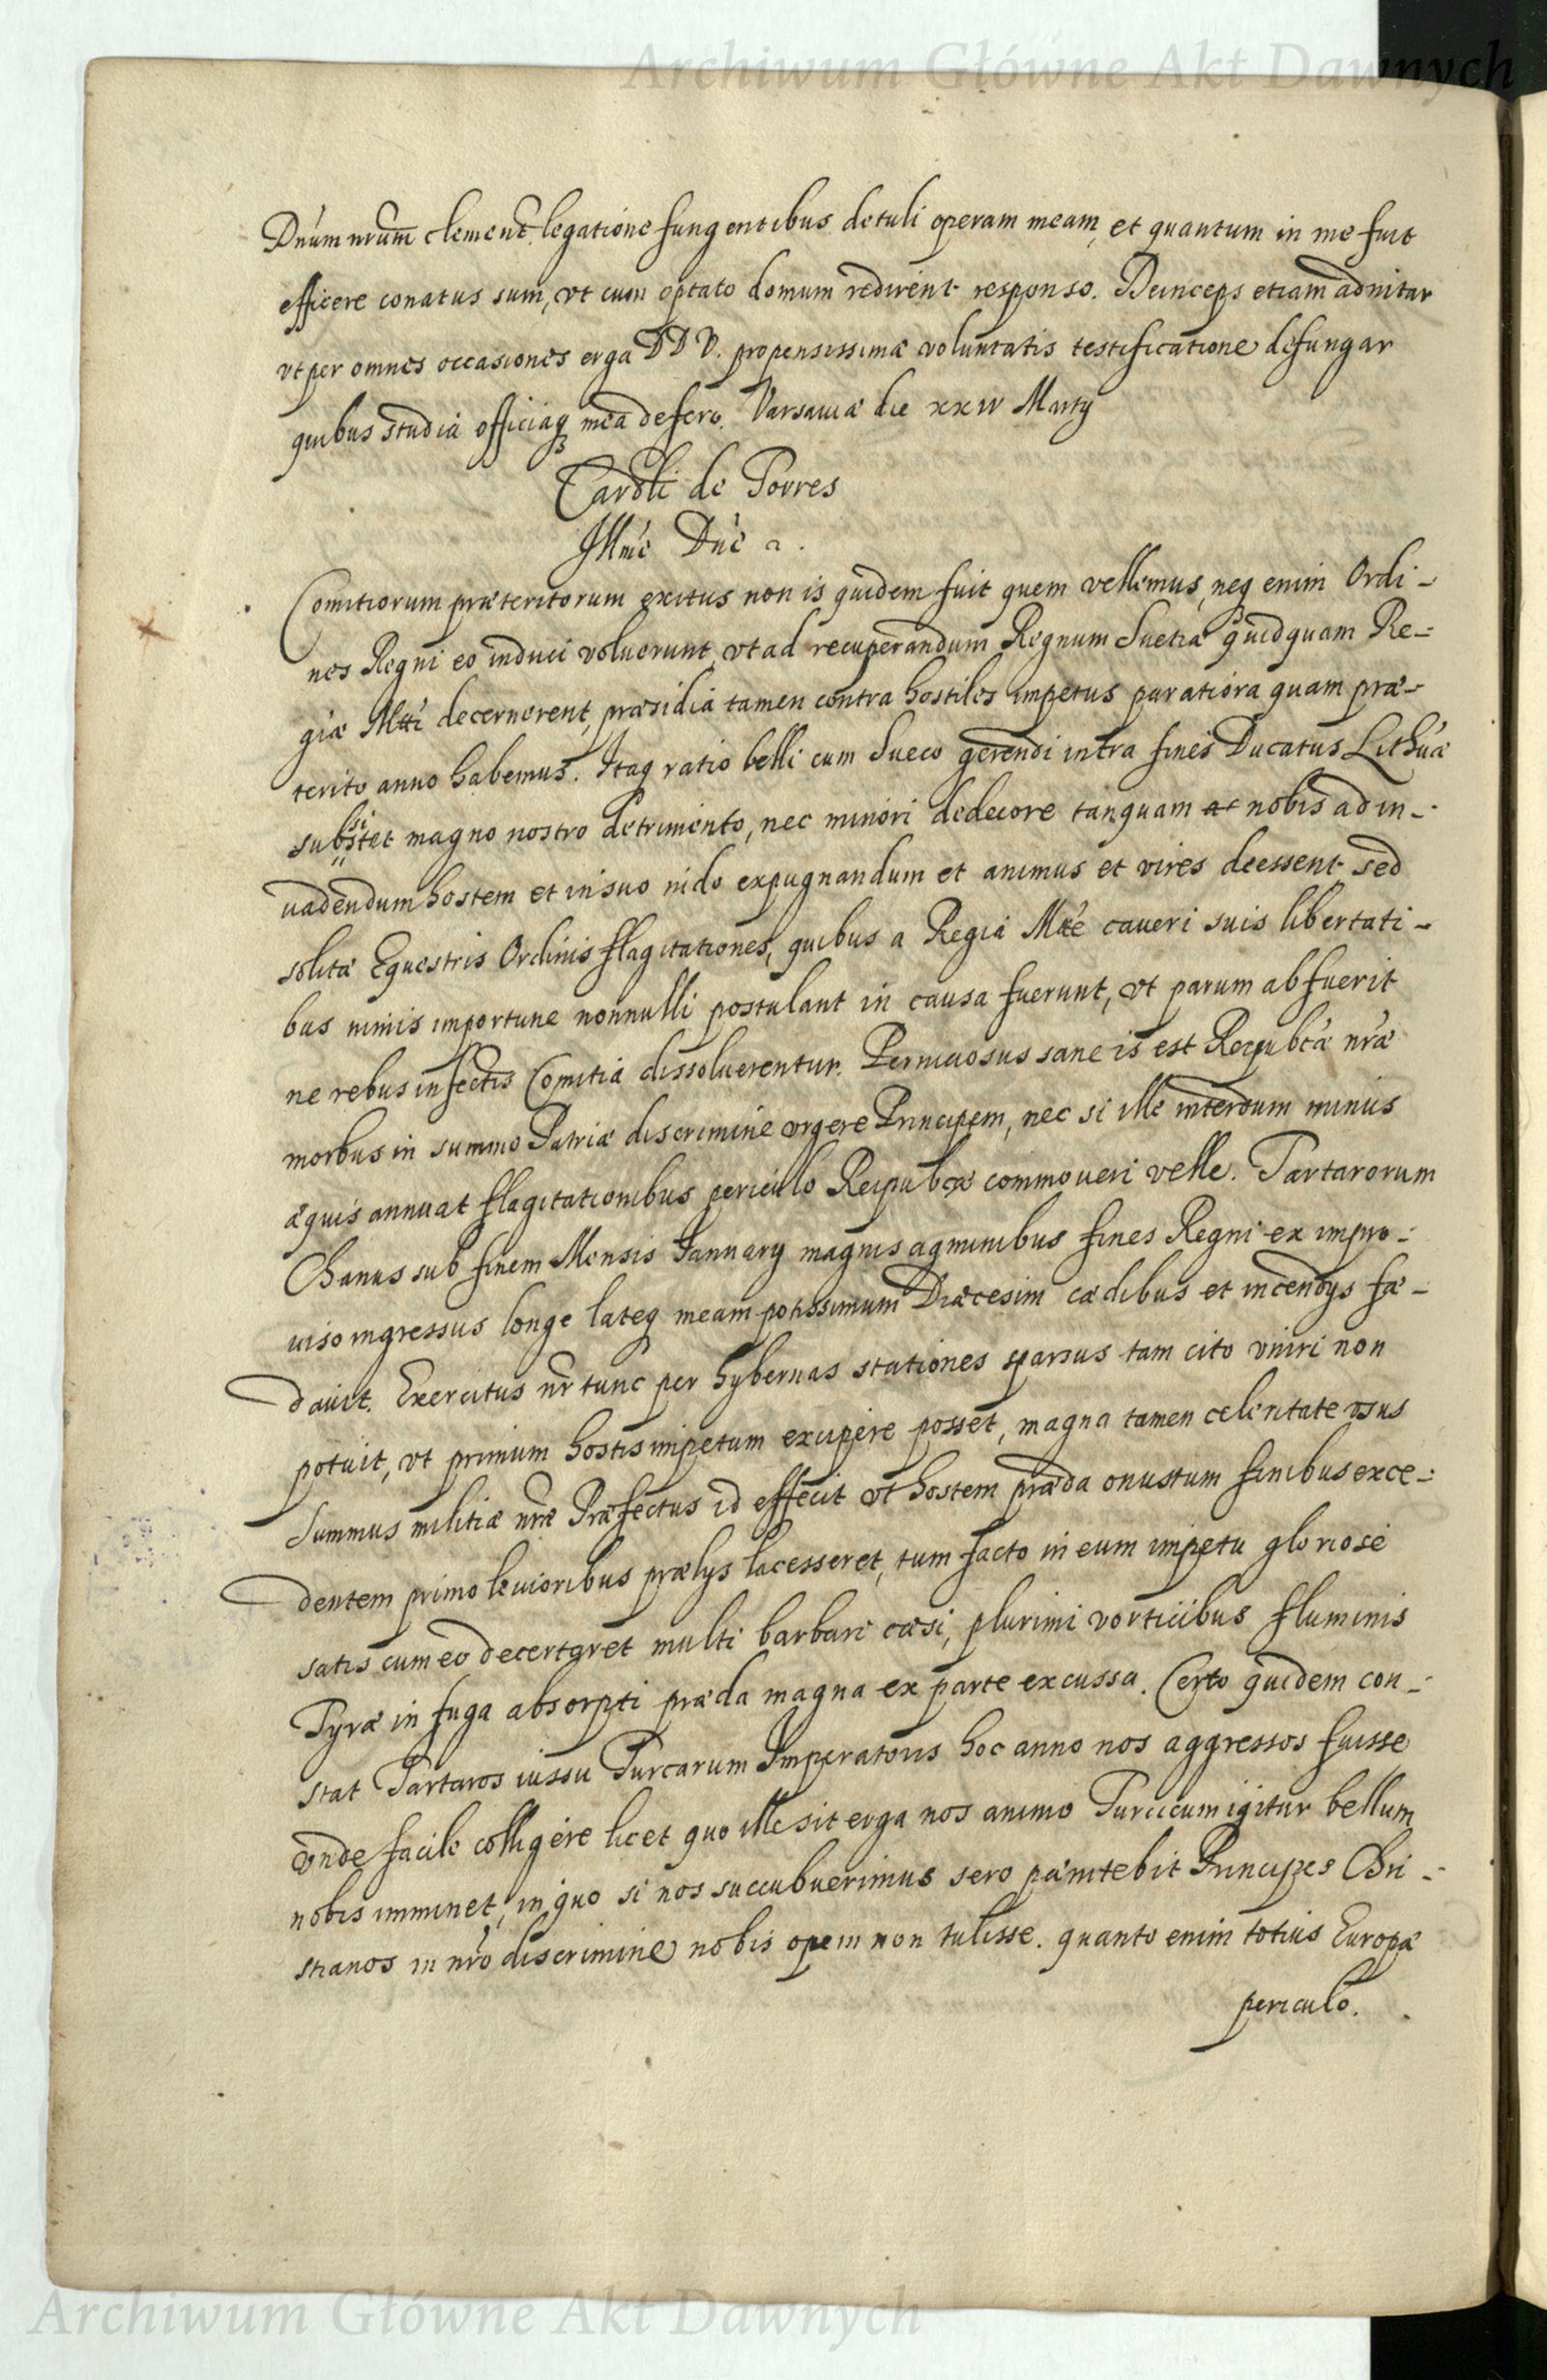 Archiwum Główne Akt Dawnych
Dnum nrum clement. legatione fungentibus detuli operam meam, et quantum in me fuit
efficere conatus sum, vt cum optato domum redirent responso. Deinceps etiam adnitar
vt per omnes occasiones erga DD V. propensissimæ voluntatis testificatione defungar
quibus studia officiaq mea defero. Varsauiæ die xxiv Martij
Caroli de Torres
Illme Dne
Comitiorum præteritorum exitus non is quidem fuit quem vellemus, neq enim Ordi-
nes Regni eo induci voluerunt, vt ad recuperandum Regnum Suetiæ quidquam Re-
giæ Mtti decernerent, præsidia tamen contra hostiles impetus paratiora quam præ-
terito anno habemus. Itaq ratio belli cum Sueco gerendi intra fines Ducatus Lithuæ
subsistet magno nostro detrimento, nec minori dedecore tanquam nobis ad in-
uadendum hostem et in suo nido expugnandum et animus et vires deessent sed
solitæ Equestris Ordinis flagitationes, quibus a Regia Mtte caueri suis libertati-
bus nimis importune nonnulli postulant in causa fuerunt, vt parum abfuerit
ne rebus infectis Comitia dissoluerentur. Perniciosus sane is est Reipubcæ nræ
morbus in summo Patriæ discrimine vrgere Principem, nec si ille interdum minus
æquis annuat flagitationibus periculo Reipubcæ commoueri velle. Tartarorum
Chanus sub finem Mensis Ianuarij magnis agminibus fines Regni ex impro-
uiso ingressus longe lateq meam potissimum Diæcesim cædibus et incendijs fæ-
dauit. Exercitus nr tunc per hybernas stationes sparsus tam cito vniri non
potuit, vt primum hostis impetum excipere posset, magna tamen celeritate vsus
Summus militiæ nræ Præfectus id effecit vt hostem præda onustum finibus exce-
dentem primo leuioribus prælijs lacesseret, tum facto in eum impetu gloriose
satis cum eo decertaret multi barbari cæsi, plurimi vorticibus fluminis
Tyræ in fuga absorpti præda magna ex parte excussa. Certo quidem con-
stat Tartaros iussu Turcarum Imperatoris hoc anno nos aggressos fuisse
vnde facile colligere licet quo ille sit erga nos animo Turcicum igitur bellum
nobis imminet, in quo si nos succubuerimus sero pænitebit Principes Chri-
stianos in nro discrimine nobis opem non tulisse. quanto enim totius Europæ
periculo.
Archiwum Główne Akt Dawnych